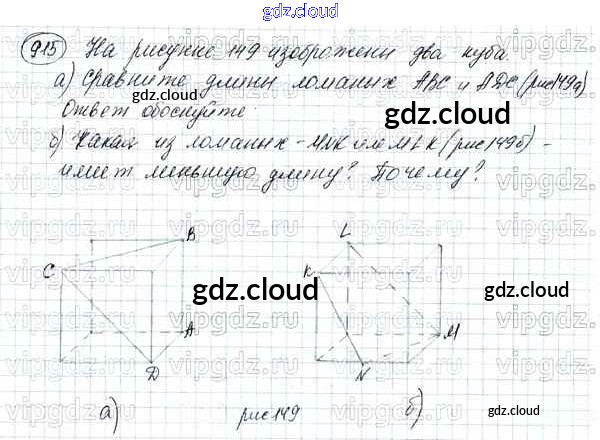 gdz.cloud
915 На рисунке 149 изображены два куба.
а) Сравните длины ломаных ABC и ADC (рис 149а)
Ответ обоснуйте.
gdz.cloud
gdz.cloud
б) Какая из ломаных - MNK или MLK (рис 149б) -
имеет меньшую длину? Почему?
vipgdz.ru
C
B
A
D
gdz.cloud
L
K
M
N
gdz.cloud
а)
рис 149
б)
gdz.cloud